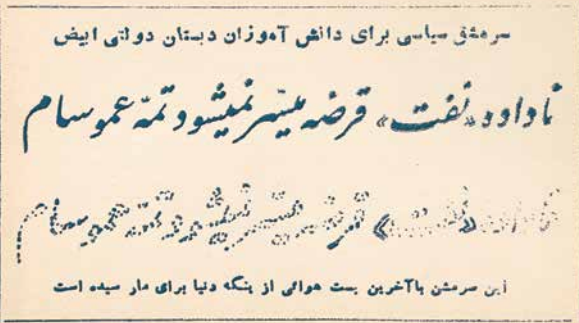 سرمشق سیاسی برای دانش آموزان دبستان دولتی ابیض
نا داده «نفت» قرضه میسر نمیشود تمّه عمو سام
نا داده «نفت» قرضه میسر نمیشود تمّه عمو سام
این سرمشق باآخرین پست هوائی از ینگه دنیا برای مار سیده است